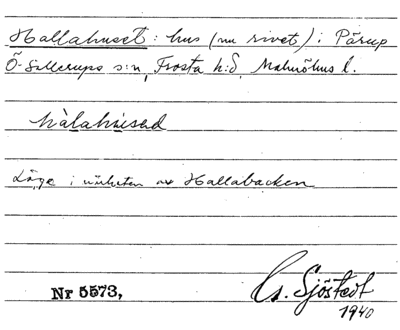 Hallahuset: hus (nu rivet) i Pårup
Ö. Sallerups s:n, Frosta h:d, Malmöhus l.
hàlahúsəd
Läge i närheten av Hallabacken
Nr 5573, G. Sjöstedt
1940